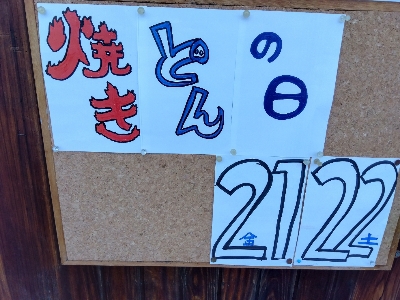 焼きどんの日
21金 22土